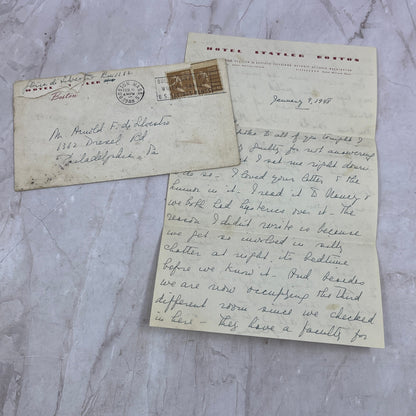 Box 1182
HOTEL STATLER
Boston
Mr Arnold F. di Silvestro
1362 Drexel Rd
Philadelphia, Pa
HOTEL STATLER BOSTON
January 9, 1948
to all of you tonight I
guilty for not answering
I set me right down
to do so - I loved your letter & the
humor in it. I read it to Nancy &
we both had hysterics over it - the
reason I didn't write is because
we get so involved in silly
chatter at night its bedtime
before we know it. And besides
we are now occupying the third
different room since we checked
in here - they have a faculty for